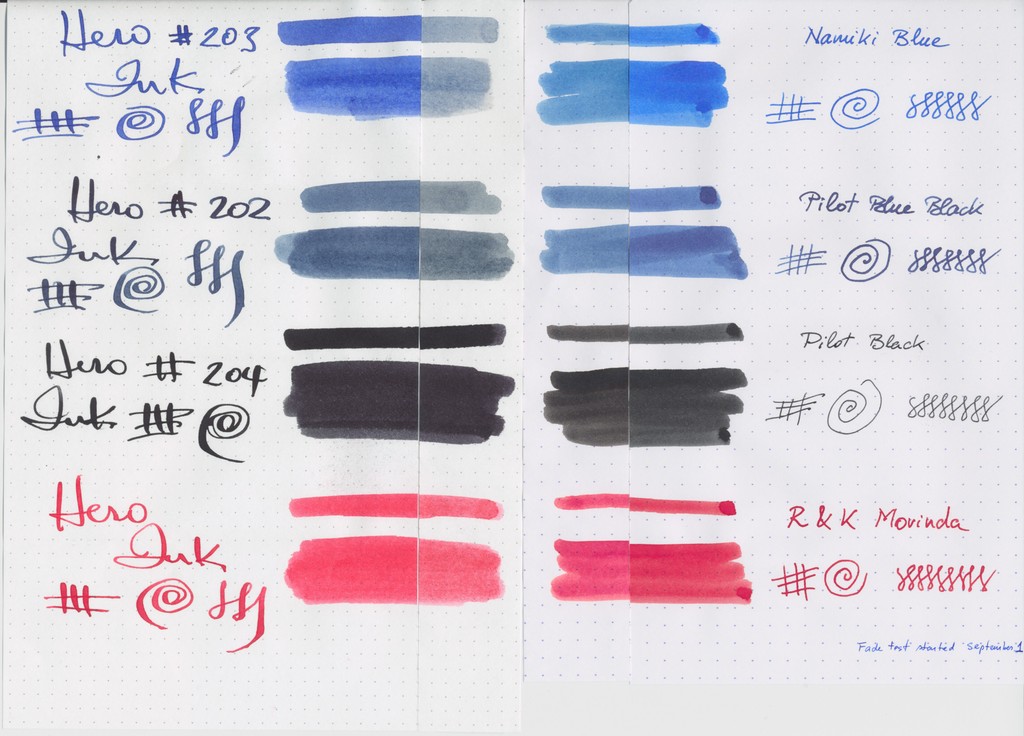 Hero # 203
Ink
Hero # 202
Ink
Hero # 204
Ink
Hero
Ink
Namiki Blue
Pilot Blue Black
Pilot Black
R & K Morinda
Fade test started September 1